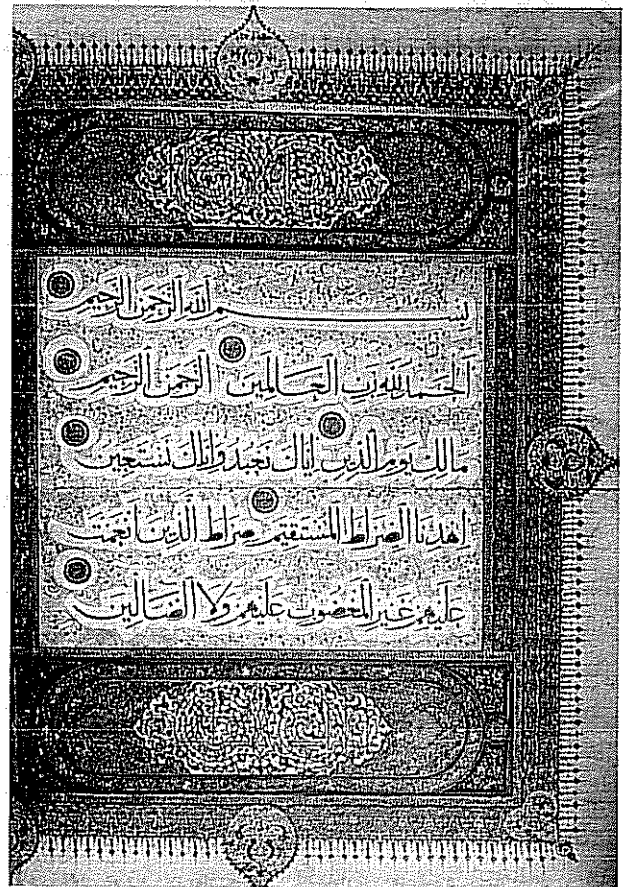 بِسْمِ اللَّهِ الرَّحْمَٰنِ الرَّحِيمِ
الْحَمْدُ لِلَّهِ رَبِّ الْعَالَمِينَ الرَّحْمَٰنِ الرَّحِيمِ
مَالِكِ يَوْمِ الدِّينِ إِيَّاكَ نَعْبُدُ وَإِيَّاكَ نَسْتَعِينُ
اهْدِنَا الصِّرَاطَ الْمُسْتَقِيمَ صِرَاطَ الَّذِينَ أَنْعَمْتَ
عَلَيْهِمْ غَيْرِ الْمَغْضُوبِ عَلَيْهِمْ وَلَا الضَّالِّينَ